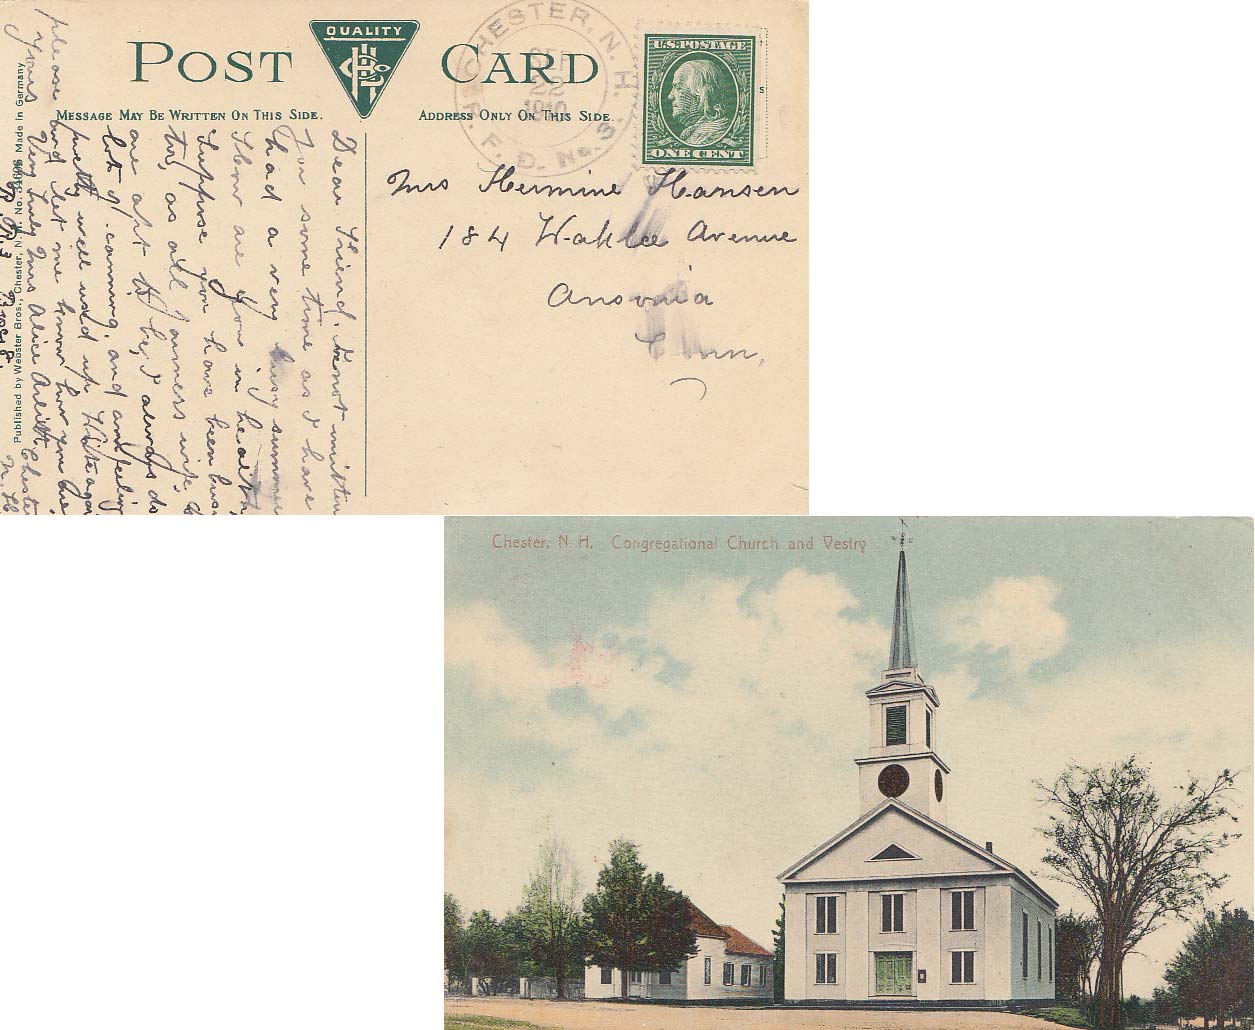 POST CARD
QUALITY
MESSAGE MAY BE WRITTEN ON THIS SIDE.
ADDRESS ONLY ON THIS SIDE.
CHESTER, N. H.
SEP
22
1910
R. F. D. No. 3.
U.S. POSTAGE
ONE CENT
Mrs Hermine Hansen
184 Waklee Avenue
Ansonia
Conn.
Dear Friend. not written
you some time as I have
had a very busy summer
How are you in health
suppose you have been busy
too, as all farmers wife's
are apt to be, I always do
lot of canning, and am feeling
pretty well used up. Write again
please and let me know how you are
Yours Very truly Mrs Alice Chester
N. H.
Published by Webster Bros., Chester, N. H. No. Made in Germany
Chester, N. H. Congregational Church and Vestry